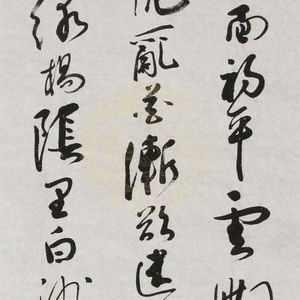 面初平雲脚
亂花漸欲迷
綠楊陰里白沙